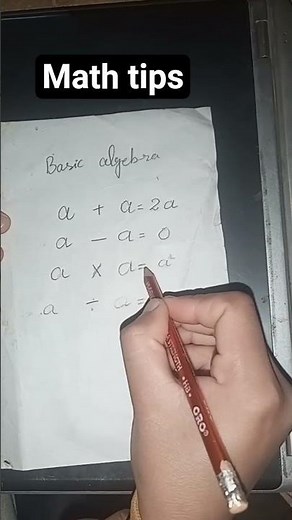 Math tips
Basic algebra
a + a = 2a
a - a = 0
a × a = a²
a ÷ a =
HB ORO